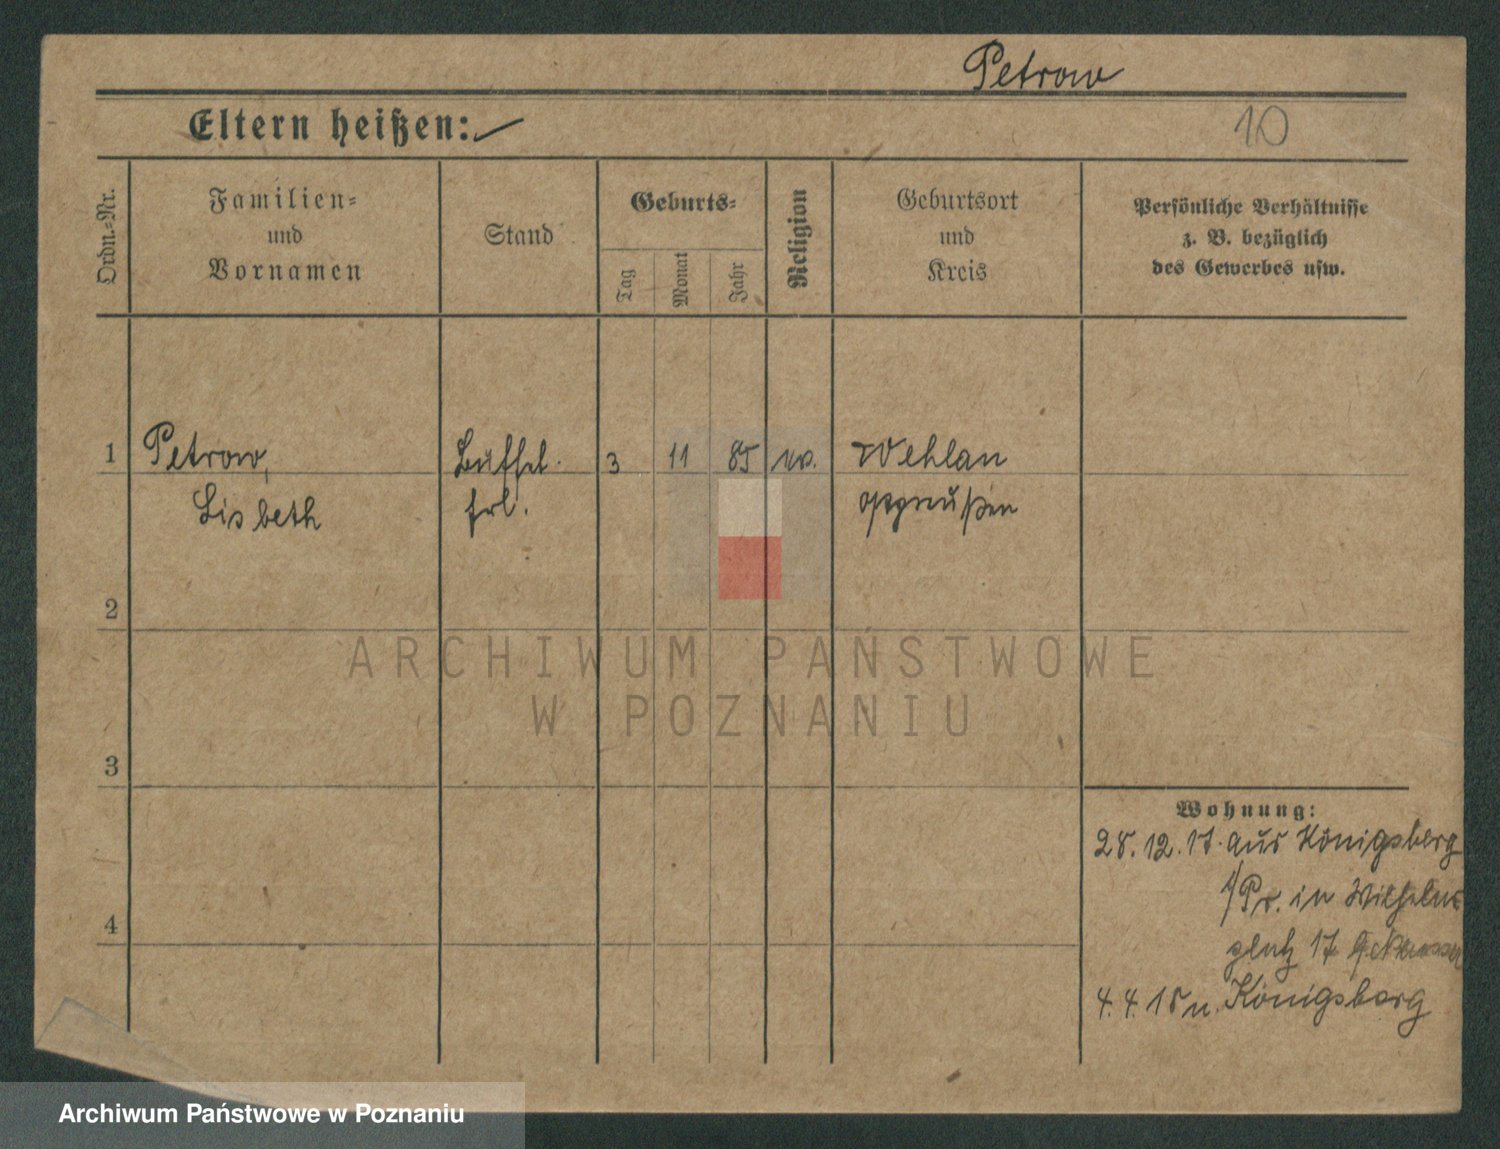 Petrow
Eltern heißen:
10
Ordn.-Nr.
Familien-
und
Vornamen
Stand
Geburts-
Tag
Monat
Jahr
Religion
Geburtsort
und
Kreis
Persönliche Verhältnisse
z. B. bezüglich
des Gewerbes usw.
1 Petrow, Büffet 3 11 85 ev. Wehlau
Lisbeth frl. Ostpreußen
2
3
4
Wohnung:
28.12.17. aus Königsberg
i/Pr. in Wilhelms
platz 17
4.4.18 n. Königsberg
ARCHIWUM PAŃSTWOWE
W POZNANIU
Archiwum Państwowe w Poznaniu